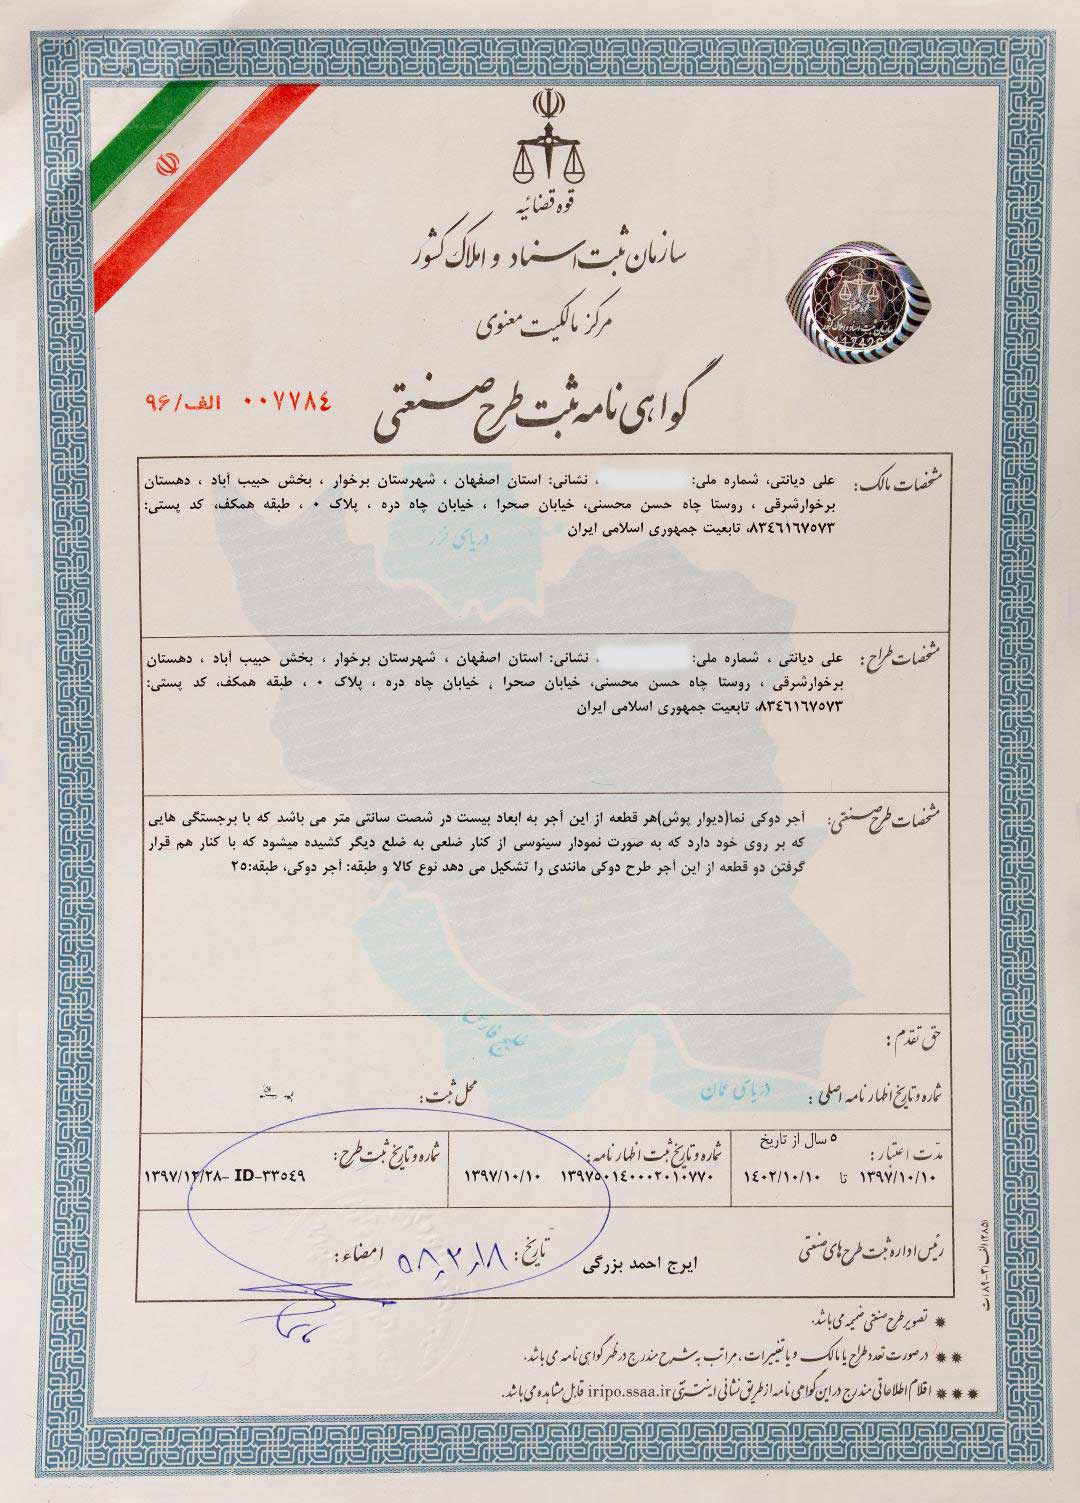 قوه قضائیه
سازمان ثبت اسناد و املاک کشور
مرکز مالکیت معنوی
گواهی نامه ثبت طرح صنعتی
۰۰۷۷۸٤ الف/۹۶
مشخصات مالک: علی دیانتی، شماره ملی: ، نشانی: استان اصفهان ، شهرستان برخوار ، بخش حبیب آباد ، دهستان
برخوارشرقی ، روستا چاه حسن محسنی، خیابان صحرا ، خیابان چاه دره ، پلاک ۰ ، طبقه همکف، کد پستی:
۸۳٤٦۱٦۷۵۷۳، تابعیت جمهوری اسلامی ایران
مشخصات طراح: علی دیانتی ، شماره ملی: ، نشانی: استان اصفهان ، شهرستان برخوار ، بخش حبیب آباد ، دهستان
برخوارشرقی ، روستا چاه حسن محسنی، خیابان صحرا ، خیابان چاه دره ، پلاک ۰ ، طبقه همکف، کد پستی:
۸۳٤٦۱٦۷۵۷۳، تابعیت جمهوری اسلامی ایران
مشخصات طرح صنعتی: آجر دوکی نما(دیوار پوش)هر قطعه از این آجر به ابعاد بیست در شصت سانتی متر می باشد که با برجستگی هایی
که بر روی خود دارد که به صورت نمودار سینوسی از کنار ضلعی به ضلع دیگر کشیده میشود که با کنار هم قرار
گرفتن دو قطعه از این آجر طرح دوکی مانندی را تشکیل می دهد نوع کالا و طبقه: آجر دوکی، طبقه:۲۵
دریای خزر
خلیج فارس
دریای عمان
حق تقدم:
شماره و تاریخ اظهار نامه اصلی: محل ثبت:
مدت اعتبار: ۵ سال از تاریخ
۱۳۹۷/۱۰/۱۰ تا ۱۴۰۲/۱۰/۱۰
شماره و تاریخ ثبت اظهار نامه:
۱۳۹۷۵۰۱٤۰۰۰۲۰۱۰۷۷۰ ۱۳۹۷/۱۰/۱۰
شماره و تاریخ ثبت طرح:
۱۳۹۷/۱۲/۲۸- ID-۳۳۵٤۹
رئیس اداره ثبت طرح های صنعتی ایرج احمد بزرگی تاریخ: امضاء:
٭ تصویر طرح صنعتی ضمیمه می باشد.
٭٭ در صورت تعدد طراح یا مالک و یا تغییرات ، مراتب به شرح مندرج در ظهر گواهی نامه می باشد.
٭٭٭ اقلام اطلاعاتی مندرج در این گواهی نامه از طریق نشانی اینترنتی iripo.ssaa.ir قابل مشاهده می باشد.